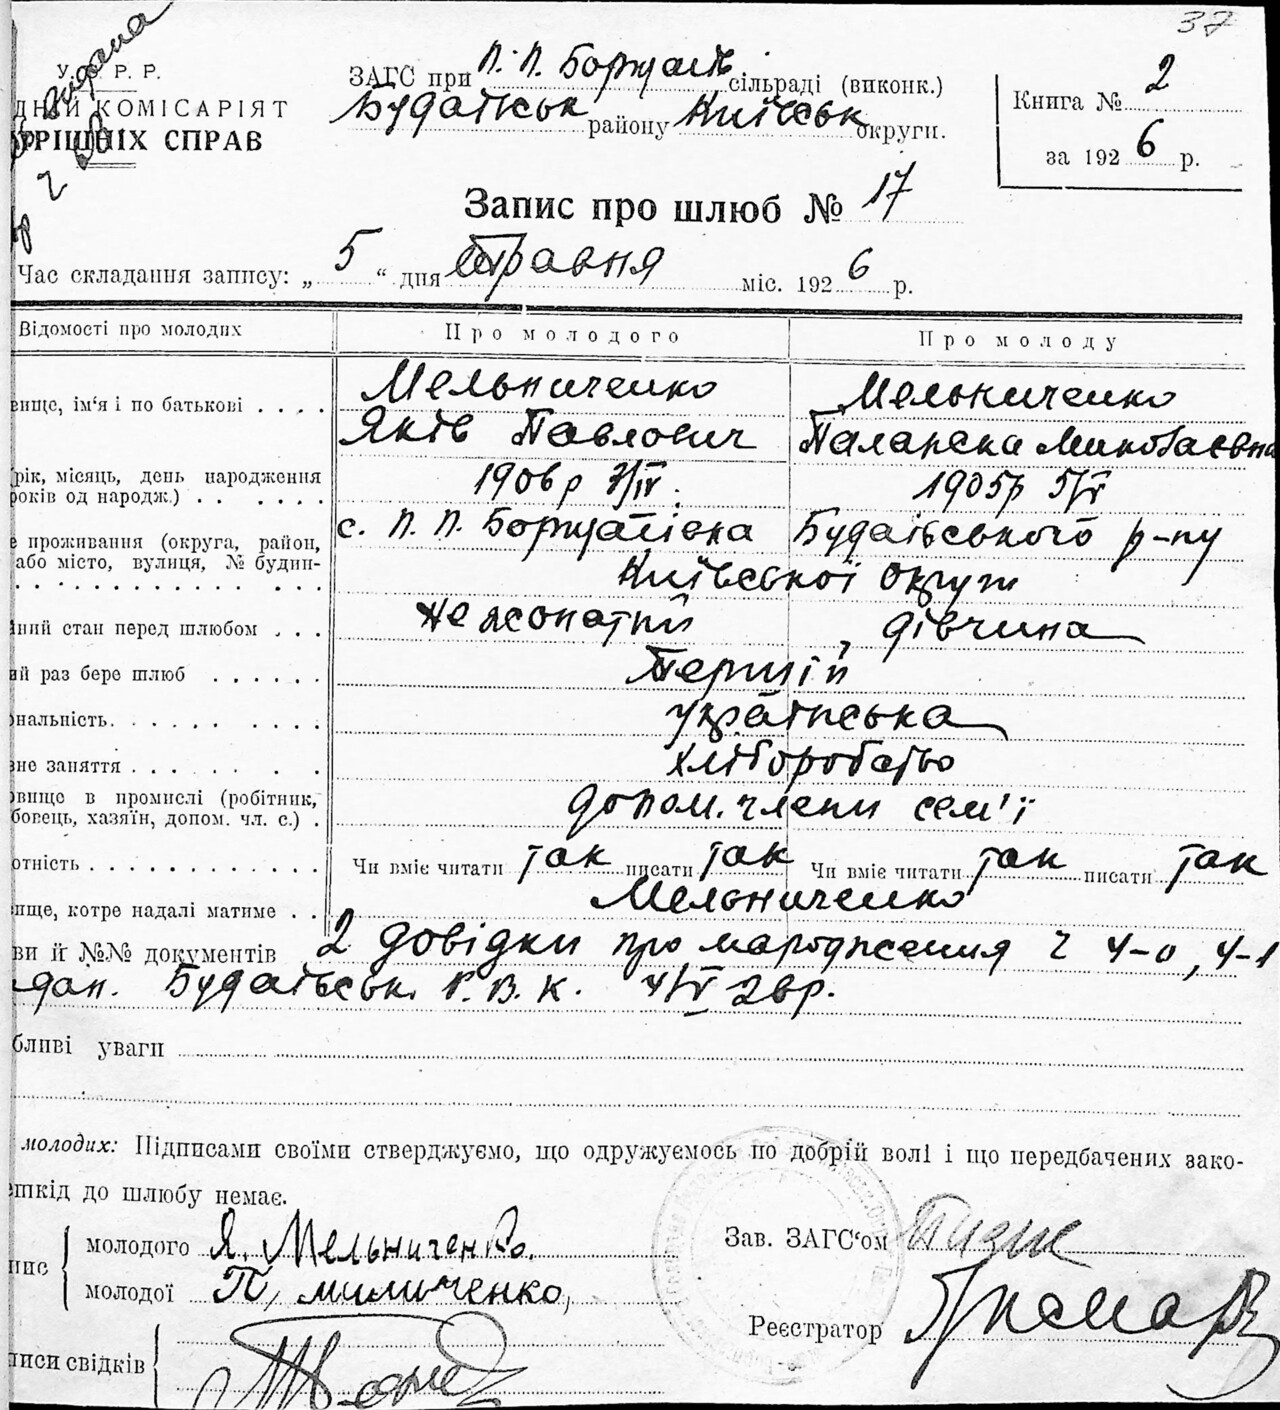 37
У. Р. Р.
ДНИЙ КОМІСАРІЯТ
ТРІШНІХ СПРАВ
ЗАГС при П. П. Борщагів сільраді (виконк.)
Будаївськ району Київськ округи.
Книга № 2
за 1926 р.
Запис про шлюб № 17
Час складання запису: „5“ дня травня міс. 1926 р.
Відомості про молодих Про молодого Про молоду
вище, ім'я і по батькові . . . . Мельниченко Мельниченко
Яків Павлович Палажка Миколаєвна
рік, місяць, день народження
років од народж.) . . . . . . 1906 р 7/IV. 1905 р 5/V
е проживання (округа, район, с. П. П. Борщагівка Будаївського р-ну
або місто, вулиця, № будин- Київської округи
ний стан перед шлюбом . . . нежонатий дівчина
ий раз бере шлюб . . . . . . Перший
ональність. . . . . . . . . українська
не заняття . . . . . . . хліборобство
овище в промислі (робітник,
бовець, хазяїн, допом. чл. с.) . допом. члени сем'ї
отність . . . . . . . . . . . . Чи вміє читати так писати так Чи вміє читати так писати так
ище, котре надалі матиме . . Мельниченко
ви й №№ документів 2 довідки про народження Ч 4-0, 4-1
дан. Будаївськ. Р. В. К. 4/V 26 р.
бливі уваги
молодих: Підписами своїми стверджуємо, що одружуємось по добрій волі і що передбачених зако-
ешкід до шлюбу немає.
пис молодого Я. Мельниченко.
молодої П, милниченко,
Зав. ЗАГС'ом
Реєстратор
писи свідків